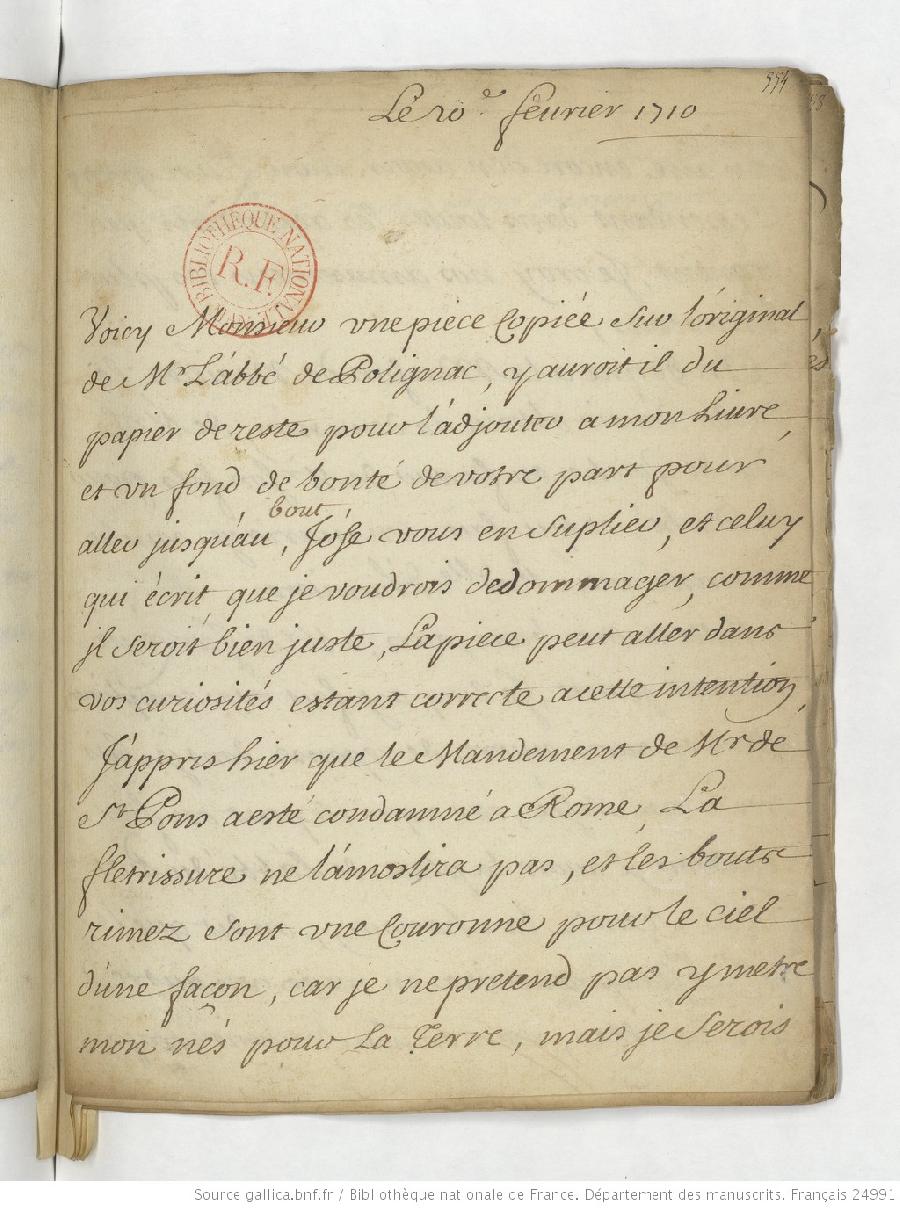 554
Le 20.e feurier 1710
BIBLIOTHÈQUE NATIONALE
R.F.
Voicy Monsieur vne piece Copiée sur l'original,
de Mr L'abbé de Polignac, y auroit il du
papier de reste pour l'adjouter a mon Liure,
et vn fond de bonté de vôtre part pour
aller jusqu'au bout, J'ose vous en suplier, et celuy
qui écrit, que je voudrois dedommager, comme
jl seroit bien juste, La piece peut aller dans
vos curiosités estant correcte a cette intention,
J'appris hier que le Mandement de Mr de
St Pons a esté condamné a Rome, La
fletrissure ne l'amortira pas, et les bouts
rimez sont vne Couronne pour le ciel
d'une façon, car je ne pretend pas y metre
mon nés pour La Terre, mais je serois
Source gallica.bnf.fr / Bibliothèque nationale de France. Département des manuscrits. Français 24991